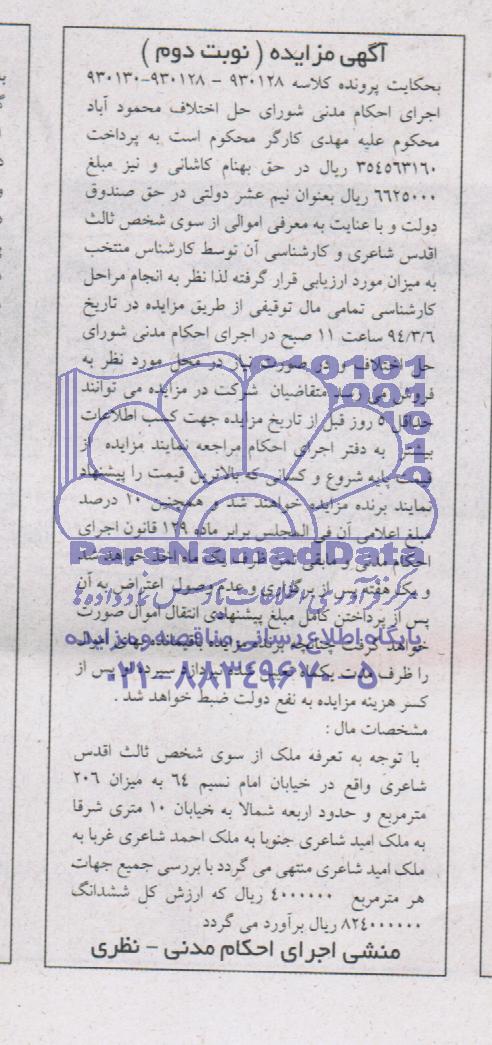 آگهی مزایده ( نوبت دوم )
بحکایت پرونده کلاسه ۹۳۰۱۲۸ - ۹۳۰۱۲۸-۹۳۰۱۳۰
اجرای احکام مدنی شورای حل اختلاف محمود آباد
محکوم علیه مهدی کارگر محکوم است به پرداخت
۳۵٤۵٦۳۱٦۰ ریال در حق بهنام کاشانی و نیز مبلغ
٦٦۲۵۰۰۰ ریال بعنوان نیم عشر دولتی در حق صندوق
دولت و با عنایت به معرفی اموالی از سوی شخص ثالث
اقدس شاعری و کارشناسی آن توسط کارشناس منتخب
به میزان مورد ارزیابی قرار گرفته لذا نظر به انجام مراحل
کارشناسی تمامی مال توقیفی از طریق مزایده در تاریخ
۹٤/۳/٦ ساعت ۱۱ صبح در اجرای احکام مدنی شورای
حل اختلاف و در صورت نیاز در محل مورد نظر به
فروش می رسد متقاضیان شرکت در مزایده می توانند
حداقل ۵ روز قبل از تاریخ مزایده جهت کسب اطلاعات
بیشتر به دفتر اجرای احکام مراجعه نمایند مزایده از
قیمت پایه شروع و کسانی که بالاترین قیمت را پیشنهاد
نمایند برنده مزایده خواهند شد و همچنین ۱۰ درصد
مبلغ اعلامی آن فی المجلس برابر ماده ۱۲۹ قانون اجرای
احکام مدنی و مابقی ثمن ظرف یک ماه اخذ خواهد شد
ParsNamadData
و یک هفته پس از برگزاری و عدم وصول اعتراض به آن
پس از پرداختن کامل مبلغ پیشنهادی انتقال اموال صورت
پایگاه اطلاع رسانی مناقصه و مزایده
خواهد گرفت چنانچه برنده مزایده باقیمانده بهای اموال
۰۲۱-۸۸۳۴۹۶۷۰-۵
را ظرف مدت یکماه تعیین شده نپردازد سپرده او پس از
کسر هزینه مزایده به نفع دولت ضبط خواهد شد .
مشخصات مال :
با توجه به تعرفه ملک از سوی شخص ثالث اقدس
شاعری واقع در خیابان امام نسیم ٦٤ به میزان ۲۰٦
مترمربع و حدود اربعه شمالا به خیابان ۱۰ متری شرقا
به ملک امید شاعری جنوبا به ملک احمد شاعری غربا به
ملک امید شاعری منتهی می گردد با بررسی جمیع جهات
هر مترمربع ٤۰۰۰۰۰۰ ریال که ارزش کل ششدانگ
۸۲٤۰۰۰۰۰۰ ریال برآورد می گردد
منشی اجرای احکام مدنی - نظری